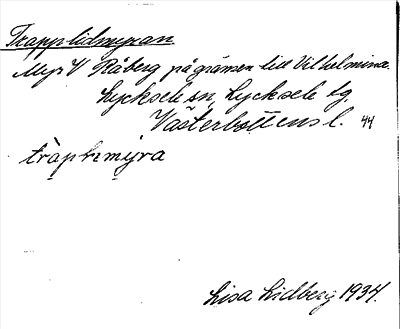 Trapplidmyran
Myr V Råberg på gränsen till Vilhelmina.
Lycksele sn, Lycksele lg.
Västerbottens l. 44
Lisa Lidberg 1934.